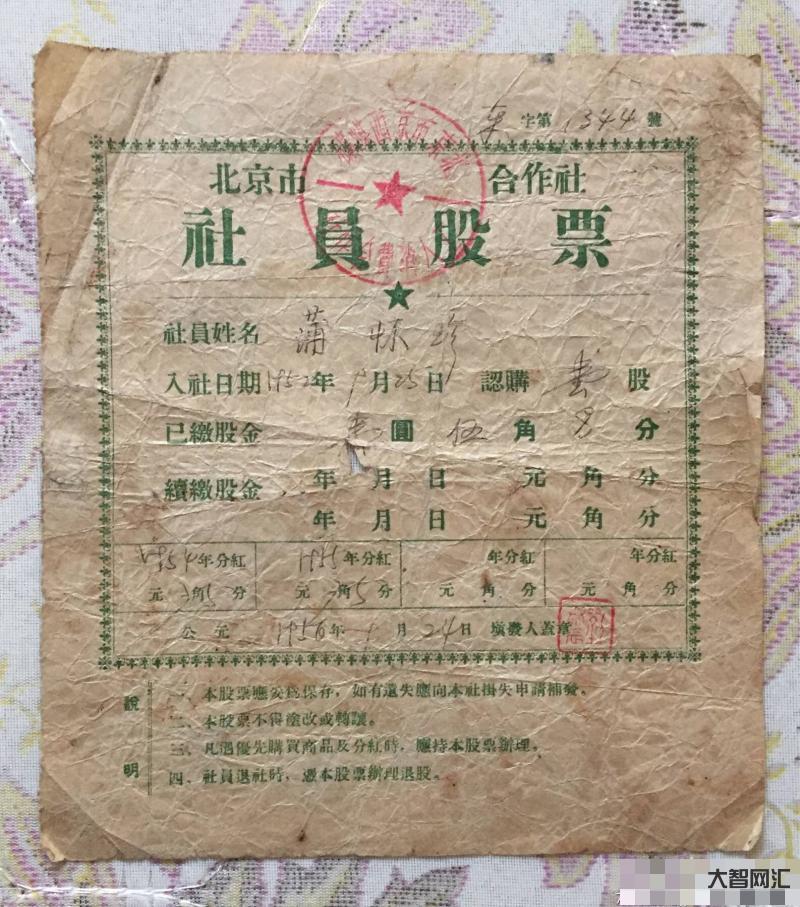 字第1344號
北京市 合作社
社員股票
社員姓名 蒲 珍
入社日期1952年 月25日 認購壹股
已繳股金 壹圓伍角 分
續繳股金 年 月 日 元 角 分
年 月 日 元 角 分
1954年分紅 1955年分紅 年分紅 年分紅
元 角5分 元 角5分 元 角 分 元 角 分
公元1956年 月24日 填發人蓋章
說明
一、本股票應妥爲保存，如有遺失應向本社掛失申請補發。
二、本股票不得塗改或轉讓。
三、凡遇優先購買商品及分紅時，應持本股票辦理。
四、社員退社時，憑本股票辦理退股。
大智网汇